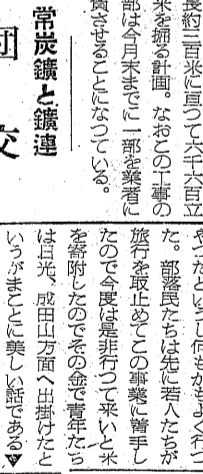 長約三百米に亘つて六千六百立
米を掘る計画。なおこの工事の
部は今月末までに一部を業者に
貫させることになつている。
常炭鑛と鑛連
団交
た。部落民たちは先に若人たちが
旅行を取止めてこの事業に着手し
たので今度は是非行つて来いと米
を寄附したのでその金で青年たち
は日光、成田山方面へ出掛けたと
いうがまことに美しい話である